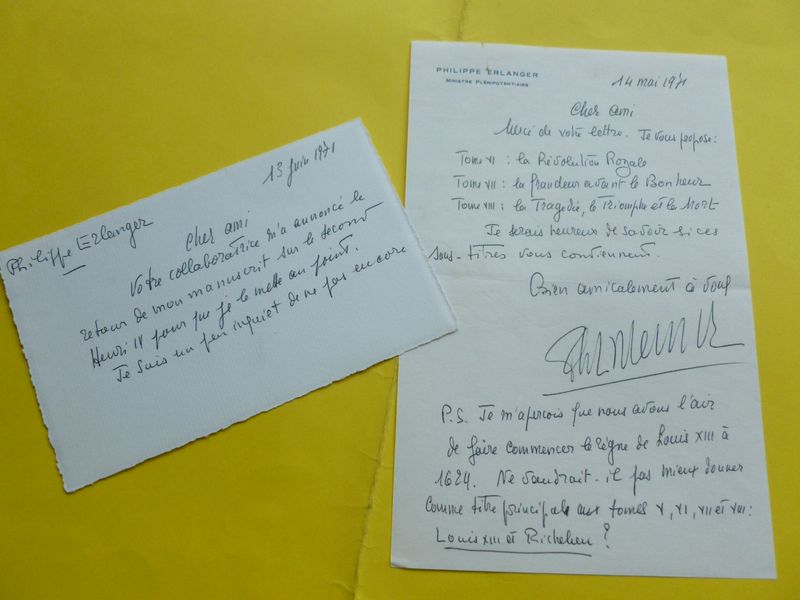 Philippe Erlanger
13 Juin 1971
Cher ami
Votre collaboratrice m'a annoncé le
retour de mon manuscrit sur le second
Henri IV pour que je le mette au point.
Je suis un peu inquiet de ne pas encore
PHILIPPE ERLANGER
MINISTRE PLÉNIPOTENTIAIRE
14 mai 1971
Cher ami
Merci de votre lettre. Je vous propose :
Tome VI : la Révolution Royale
Tome VII : la Grandeur avant le Bonheur
Tome VIII : la Tragédie, le Triomphe et la Mort
Je serais heureux de savoir si ces
sous-titres vous conviennent.
Bien amicalement à vous
P.S. Je m'aperçois que nous avons l'air
de faire commencer le règne de Louis XIII à
1624. Ne vaudrait-il pas mieux donner
comme titre principal aux tomes V, VI, VII et VIII :
Louis XIII et Richelieu ?